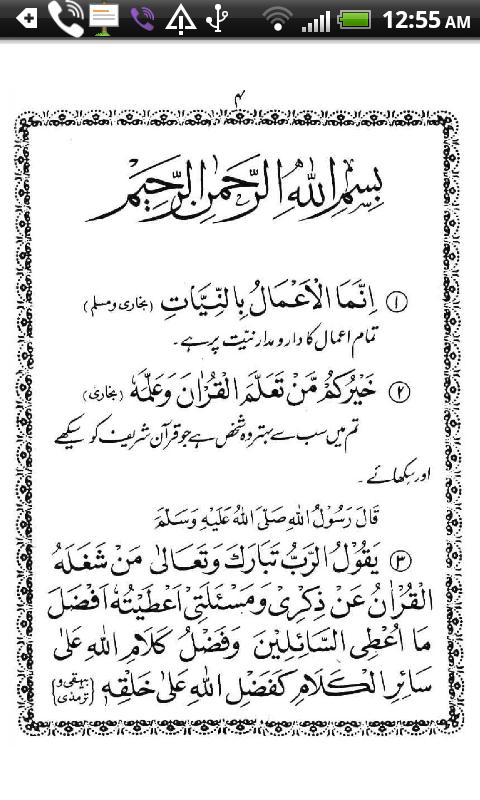 12:55 AM
۴
بِسْمِ اللهِ الرَّحْمٰنِ الرَّحِيْمِ
① اِنَّمَا الْاَعْمَالُ بِالنِّيَّاتِ (بخاری ومسلم)
تمام اعمال کا دارومدار نیّت پر ہے۔
② خَيْرُكُمْ مَّنْ تَعَلَّمَ الْقُرْاٰنَ وَعَلَّمَهٗ (بخاری)
تم میں سب سے بہتر وہ شخص ہے جو قرآن شریف کو سیکھے
اور سکھائے۔
قَالَ رَسُوْلُ اللهِ صَلَّى اللهُ عَلَيْهِ وَسَلَّمَ
③ يَقُوْلُ الرَّبُّ تَبَارَكَ وَتَعَالٰى مَنْ شَغَلَهُ
الْقُرْاٰنُ عَنْ ذِكْرِيْ وَمَسْئَلَتِيْ اَعْطَيْتُهٗ اَفْضَلَ
مَا اُعْطِي السَّائِلِيْنَ وَفَضْلُ كَلَامِ اللهِ عَلٰى
سَائِرِ الْكَلَامِ كَفَضْلِ اللهِ عَلٰى خَلْقِهٖ (بیہقی و ترمذی)